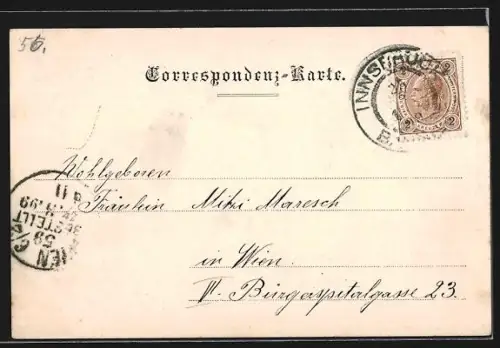 56.
Correspondenz-Karte.
INNSBRUCK
2 2
Wohlgeboren
Fräulein Mitzi Maresch
in Wien
VI. Bürgerspitalgasse 23.
WIEN 6/2
59
BESTELLT
99